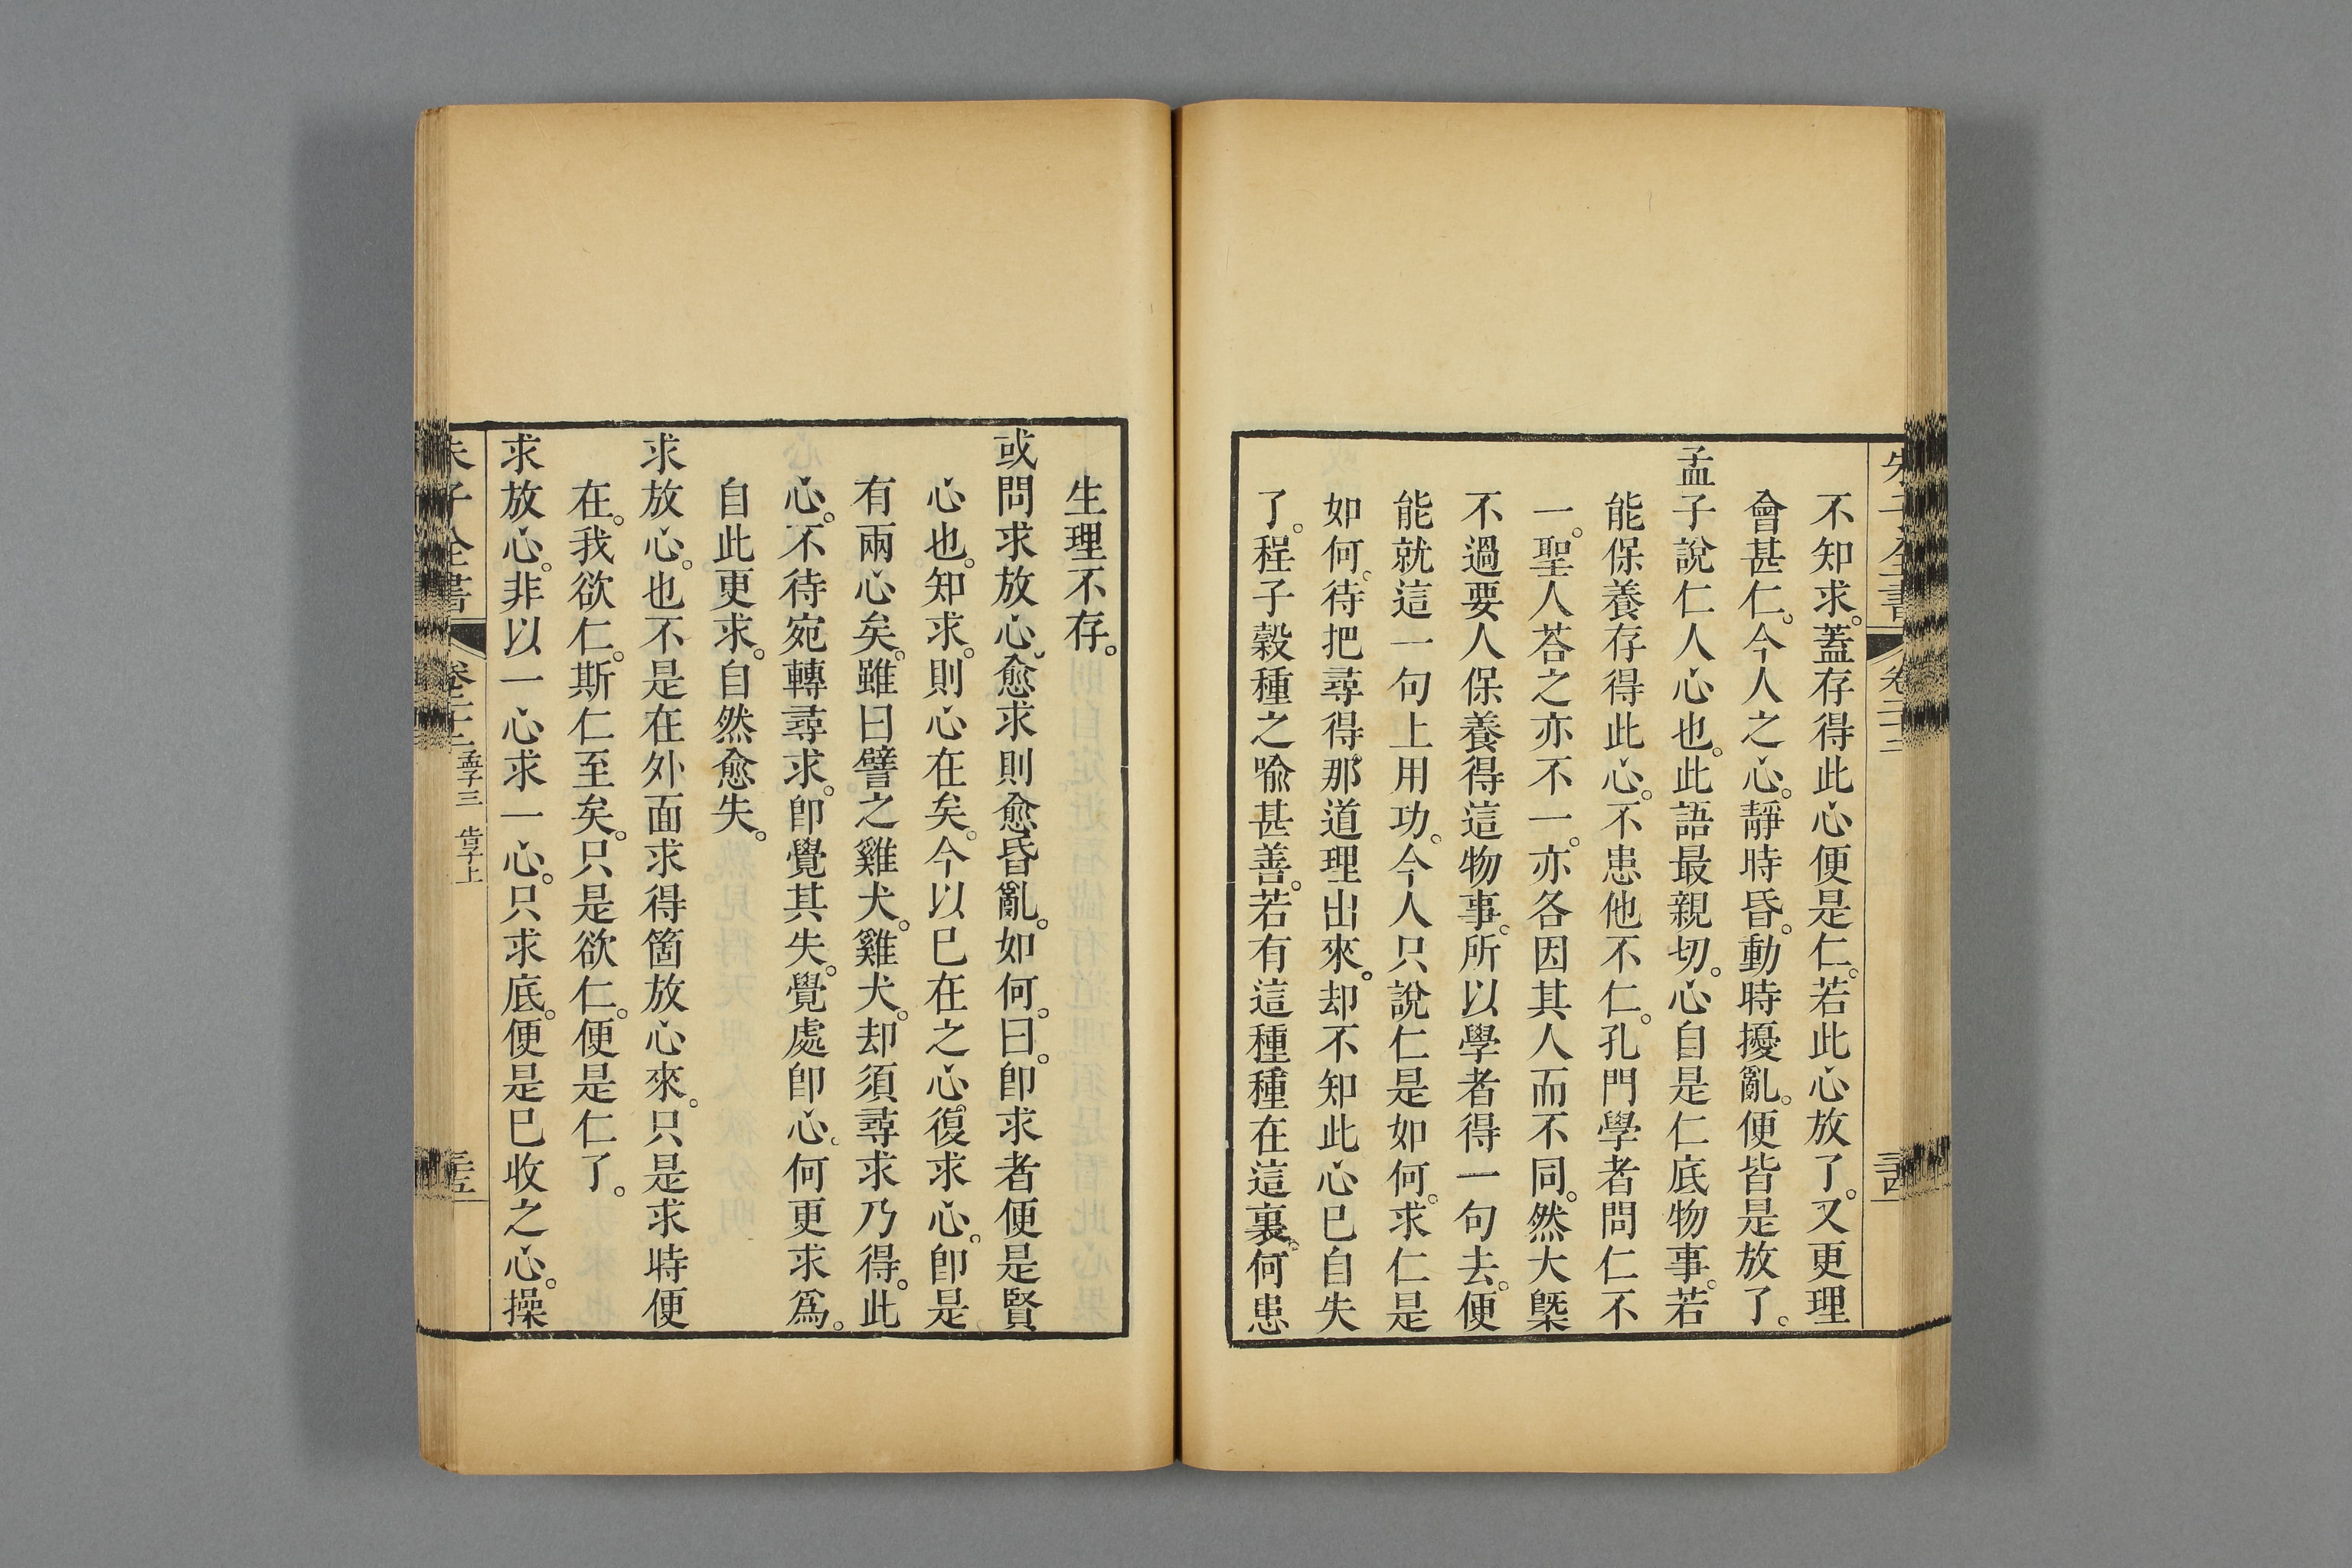 不知求。蓋存得此心便是仁。若此心放了。又更理
會甚仁。今人之心。靜時昏。動時擾亂。便皆是放了。
孟子說仁人心也。此語最親切。心自是仁底物事。若
能保養存得此心。不患他不仁。孔門學者問仁不
一。聖人荅之亦不一。亦各因其人而不同。然大槩
不過要人保養得這物事。所以學者得一句去。便
能就這一句上用功。今人只說仁是如何。求仁是
如何。待把尋得那道理出來。却不知此心已自失
了。程子穀種之喻甚善。若有這種種在這裏。何患
生理不存。
或問求放心、愈求則愈昏亂。如何。曰。卽求者便是賢
心也。知求。則心在矣。今以已在之心。復求心。卽是
有兩心矣。雖曰譬之雞犬。雞犬。却須尋求乃得。此
心。不待宛轉尋求。卽覺其失。覺處卽心。何更求爲。
自此更求。自然愈失。
求放心。也不是在外面求得箇放心來。只是求時便
在。我欲仁。斯仁至矣。只是欲仁。便是仁了。
求放心。非以一心求一心。只求底。便是已收之心。操
朱子全書 卷二十二 孟子三 告子上